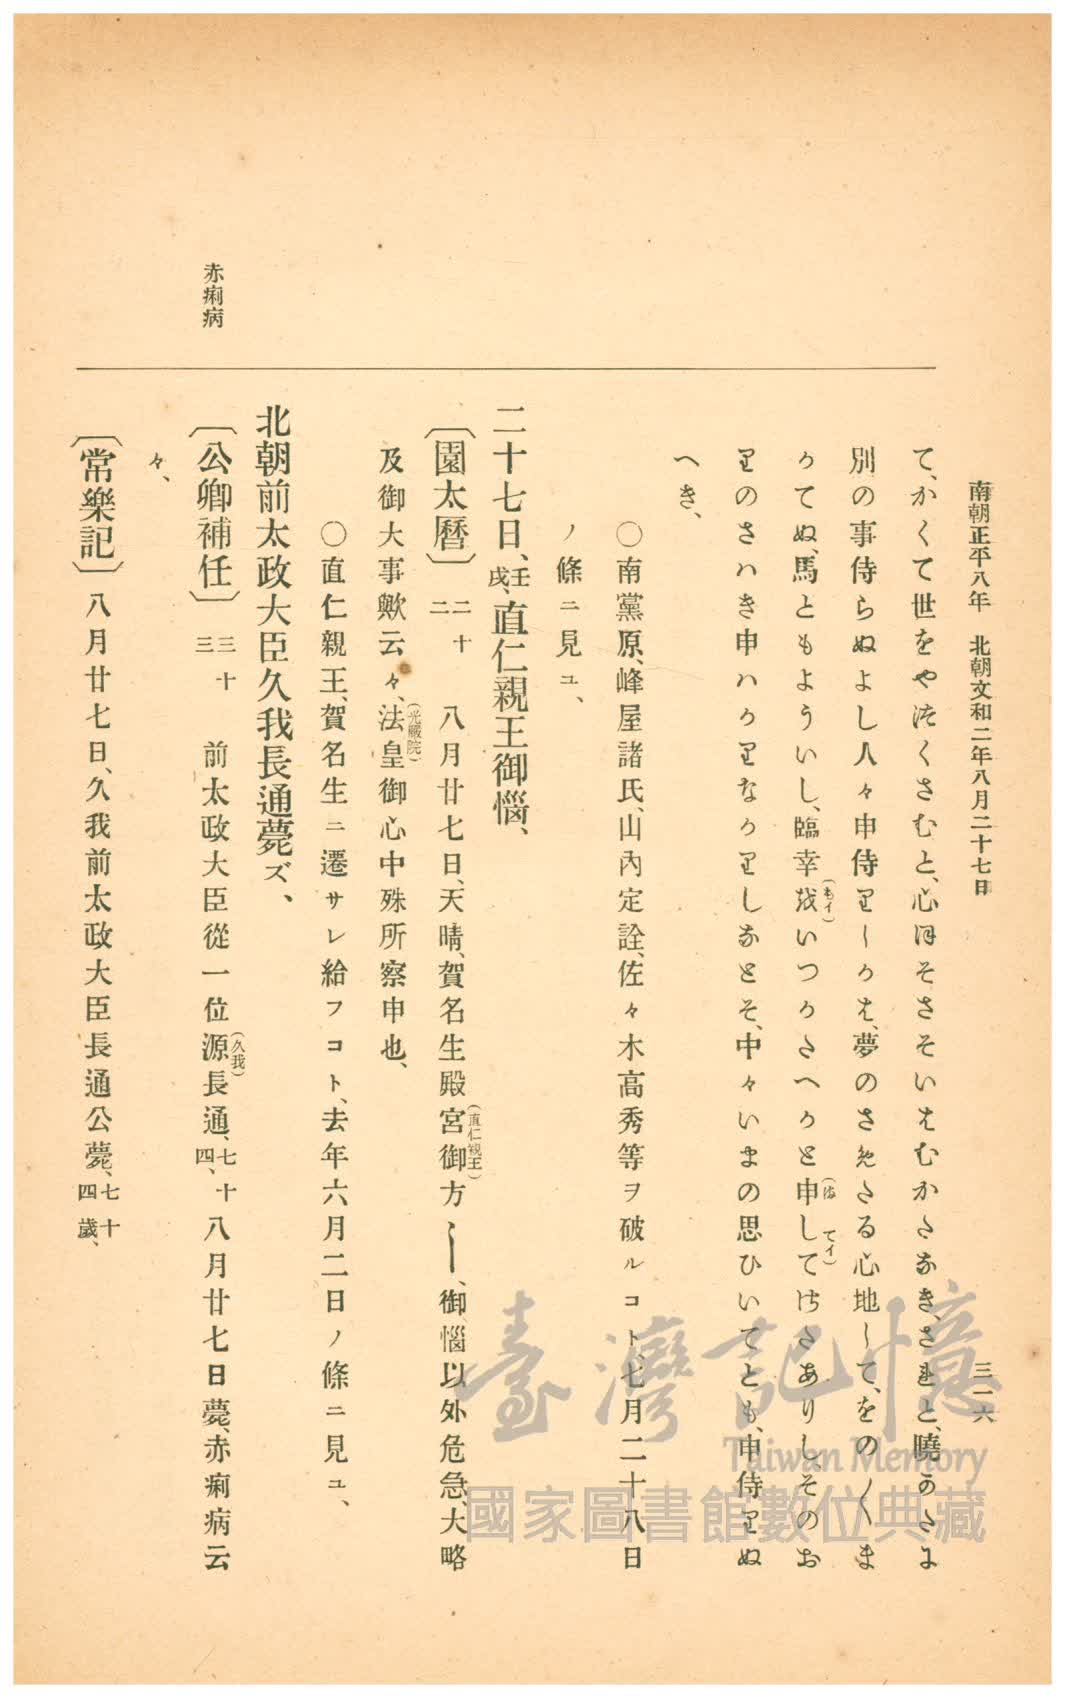 南朝正平八年 北朝文和二年八月二十七日
三一六
て、かくて世をやにくさむと、心ほそさそいはむかたなき、されと、曉のたよ
別の事侍らぬよし人々申侍りしかは、夢のさめたる心地して、をの〱ま
かてぬ、馬ともよういし、臨幸越(もイ)いつかたへかと申し(侍)て(てイ)けさありし、そのお
りのさはき申はかりなかりしなとそ、中々いまの思ひいてとも、申侍りぬ
へき、
〇南黨原、峰屋諸氏、山內定詮、佐々木高秀等ヲ破ルコト、七月二十八日
ノ條ニ見ユ、
二十七日、壬戌、直仁親王御惱、
〔園太曆〕 二十二 八月廿七日、天晴、賀名生殿宮御方(直仁親王)〱、御惱以外危急、大略
及御大事歟云々、法皇(光嚴院)御心中殊所察申也、
〇直仁親王、賀名生ニ遷サレ給フコト、去年六月二日ノ條ニ見ユ、
北朝前太政大臣久我長通薨ズ、
赤痢病
〔公卿補任〕 三十三 前太政大臣從一位源(久我)長通、七十四、八月廿七日薨、赤痢病云
々、
〔常樂記〕 八月廿七日、久我前太政大臣長通公薨、七十四歲、
臺灣記憶
Taiwan Memory
國家圖書館數位典藏